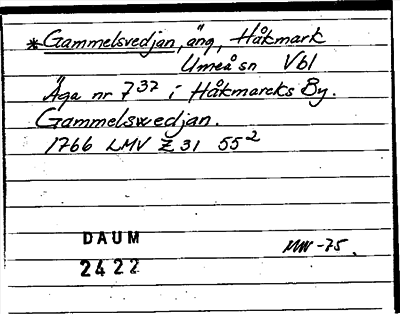 *Gammelsvedjan, äng, Håkmark
Umeå sn Vbl
Äga nr 7³² i Håkmarcks By.
Gammelswedjan.
1766 LMV Z 31 55²
DAUM
2422
MW-75.